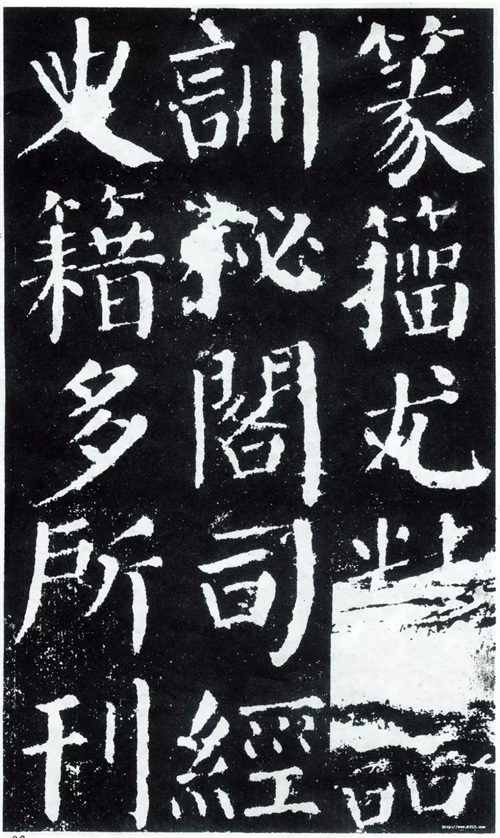 篆籀尤詁
訓秘閣司經
史籍多所刊